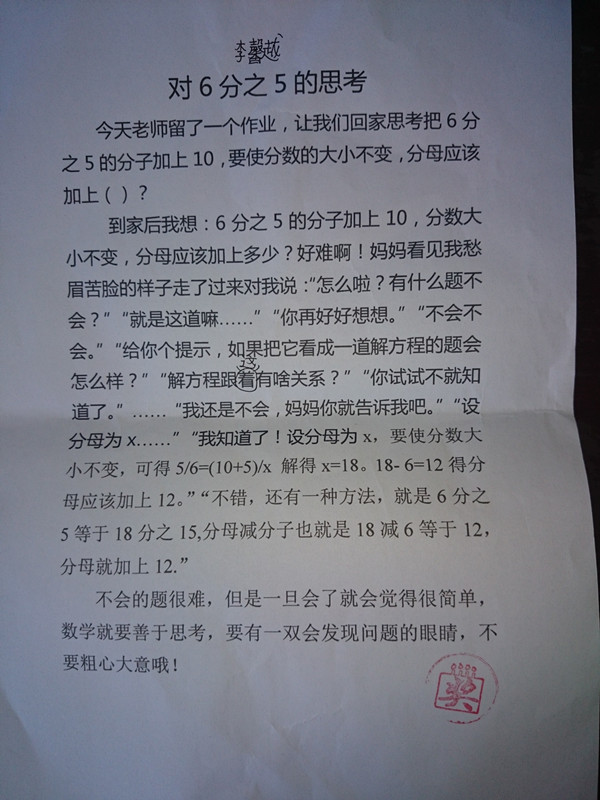 李馨越
对6分之5的思考
今天老师留了一个作业，让我们回家思考把6分
之5的分子加上10，要使分数的大小不变，分母应该
加上（）？
到家后我想：6分之5的分子加上10，分数大
小不变，分母应该加上多少？好难啊！妈妈看见我愁
眉苦脸的样子走了过来对我说：“怎么啦？有什么题不
会？”“就是这道嘛……”“你再好好想想。”“不会不
会。”“给你个提示，如果把它看成一道解方程的题会
怎么样？”“解方程跟着有啥关系？”“你试试不就知
道了。”……“我还是不会，妈妈你就告诉我吧。”“设
分母为x……”“我知道了！设分母为x，要使分数大
小不变，可得5/6=(10+5)/x 解得x=18。18- 6=12得分
母应该加上12。”“不错，还有一种方法，就是6分之
5等于18分之15,分母减分子也就是18减6等于12，
分母就加上12.”
不会的题很难，但是一旦会了就会觉得很简单，
数学就要善于思考，要有一双会发现问题的眼睛，不
要粗心大意哦！
奖